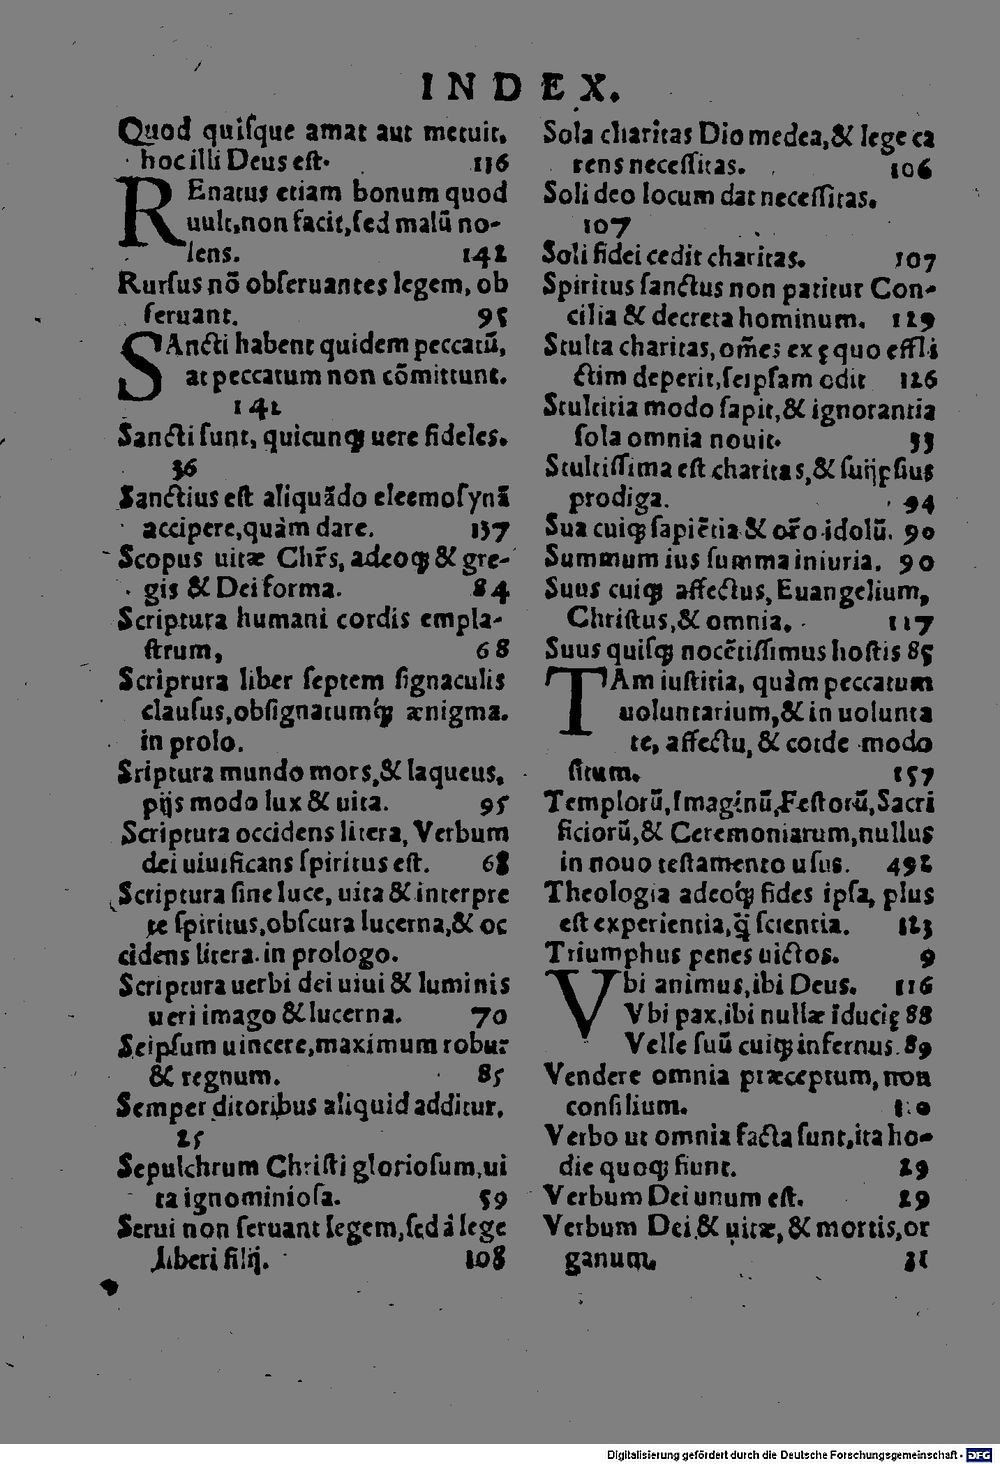 INDEX.
Quod quiſque amat aut metuit,
hoc illi Deus eſt. 116
REnatus etiam bonum quod
uult, non facit, ſed malũ no-
lens. 142
Rurſus nõ obſeruantes legem, ob
ſeruant. 95
SAncti habent quidem peccatũ,
at peccatum non cõmittunt.
142
Sancti ſunt, quicunꝗ uere fideles.
36
Sanctius eſt aliquãdo eleemoſynã
accipere, quàm dare. 137
Scopus uitæ Chr̃s, adeoꝗ & gre-
gis & Dei forma. 84
Scriptura humani cordis empla-
ſtrum, 68
Scriprura liber ſeptem ſignaculis
clauſus, obſignatumꝗ́ ænigma.
in prolo.
Sriptura mundo mors, & laqueus,
pijs modo lux & uita. 95
Scriptura occidens litera, Verbum
dei uiuificans ſpiritus eſt. 68
Scriptura ſine luce, uita & interpre
te ſpiritus, obſcura lucerna, & oc
cidens litera. in prologo.
Scriptura uerbi dei uiui & luminis
ueri imago & lucerna. 70
Seipſum uincere, maximum robur
& regnum. 85
Semper ditoribus aliquid additur.
25
Sepulchrum Chriſti glorioſum, ui
ta ignominioſa. 59
Serui non ſeruant legem, ſed à lege
liberi filij. 108
Sola charitas Dio medea, & lege ca
rens neceſſitas. 106
Soli deo locum dat neceſſitas.
107
Soli fidei cedit charitas. 107
Spiritus ſanctus non patitur Con-
cilia & decreta hominum. 129
Stulta charitas, om̃es ex ę quo effli
ctim deperit, ſeipſam odit 126
Stultitia modo ſapit, & ignorantia
ſola omnia nouit. 33
Stultiſſima eſt charitas, & ſuijpſius
prodiga. 94
Sua cuiꝗ ſapiẽtia & or̃o idolũ. 90
Summum ius ſumma iniuria. 90
Suus cuiꝗ affectus, Euangelium,
Chriſtus, & omnia. 117
Suus quiſꝗ nocẽtiſſimus hoſtis 85
TAm iuſtitia, quàm peccatum
uoluntarium, & in uolunta
te, affectu, & corde modo
ſitum. 157
Templorũ, Imaginũ, Feſtorũ, Sacri
ficiorũ, & Ceremoniarum, nullus
in nouo teſtamento uſus. 492
Theologia adeoꝗ́ fides ipſa, plus
eſt experientia, ꝗ̃ ſcientia. 123
Triumphus penes uictos. 9
Vbi animus, ibi Deus. 116
Vbi pax, ibi nullæ ĩducię 88
Velle ſuũ cuiꝗ infernus. 89
Vendere omnia præceptum, non
conſilium.
Verbo ut omnia facta ſunt, ita ho-
die quoꝗ fiunt. 29
Verbum Dei unum eſt. 29
Verbum Dei & uitæ, & mortis, or
ganum. 31
Digitalisierung gefördert durch die Deutsche Forschungsgemeinschaft - DFG